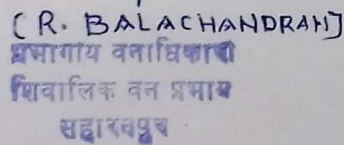 (R. BALACHANDRAN)
प्रभागीय वनाधिकारी
शिवालिक वन प्रभाग
सहारनपुर